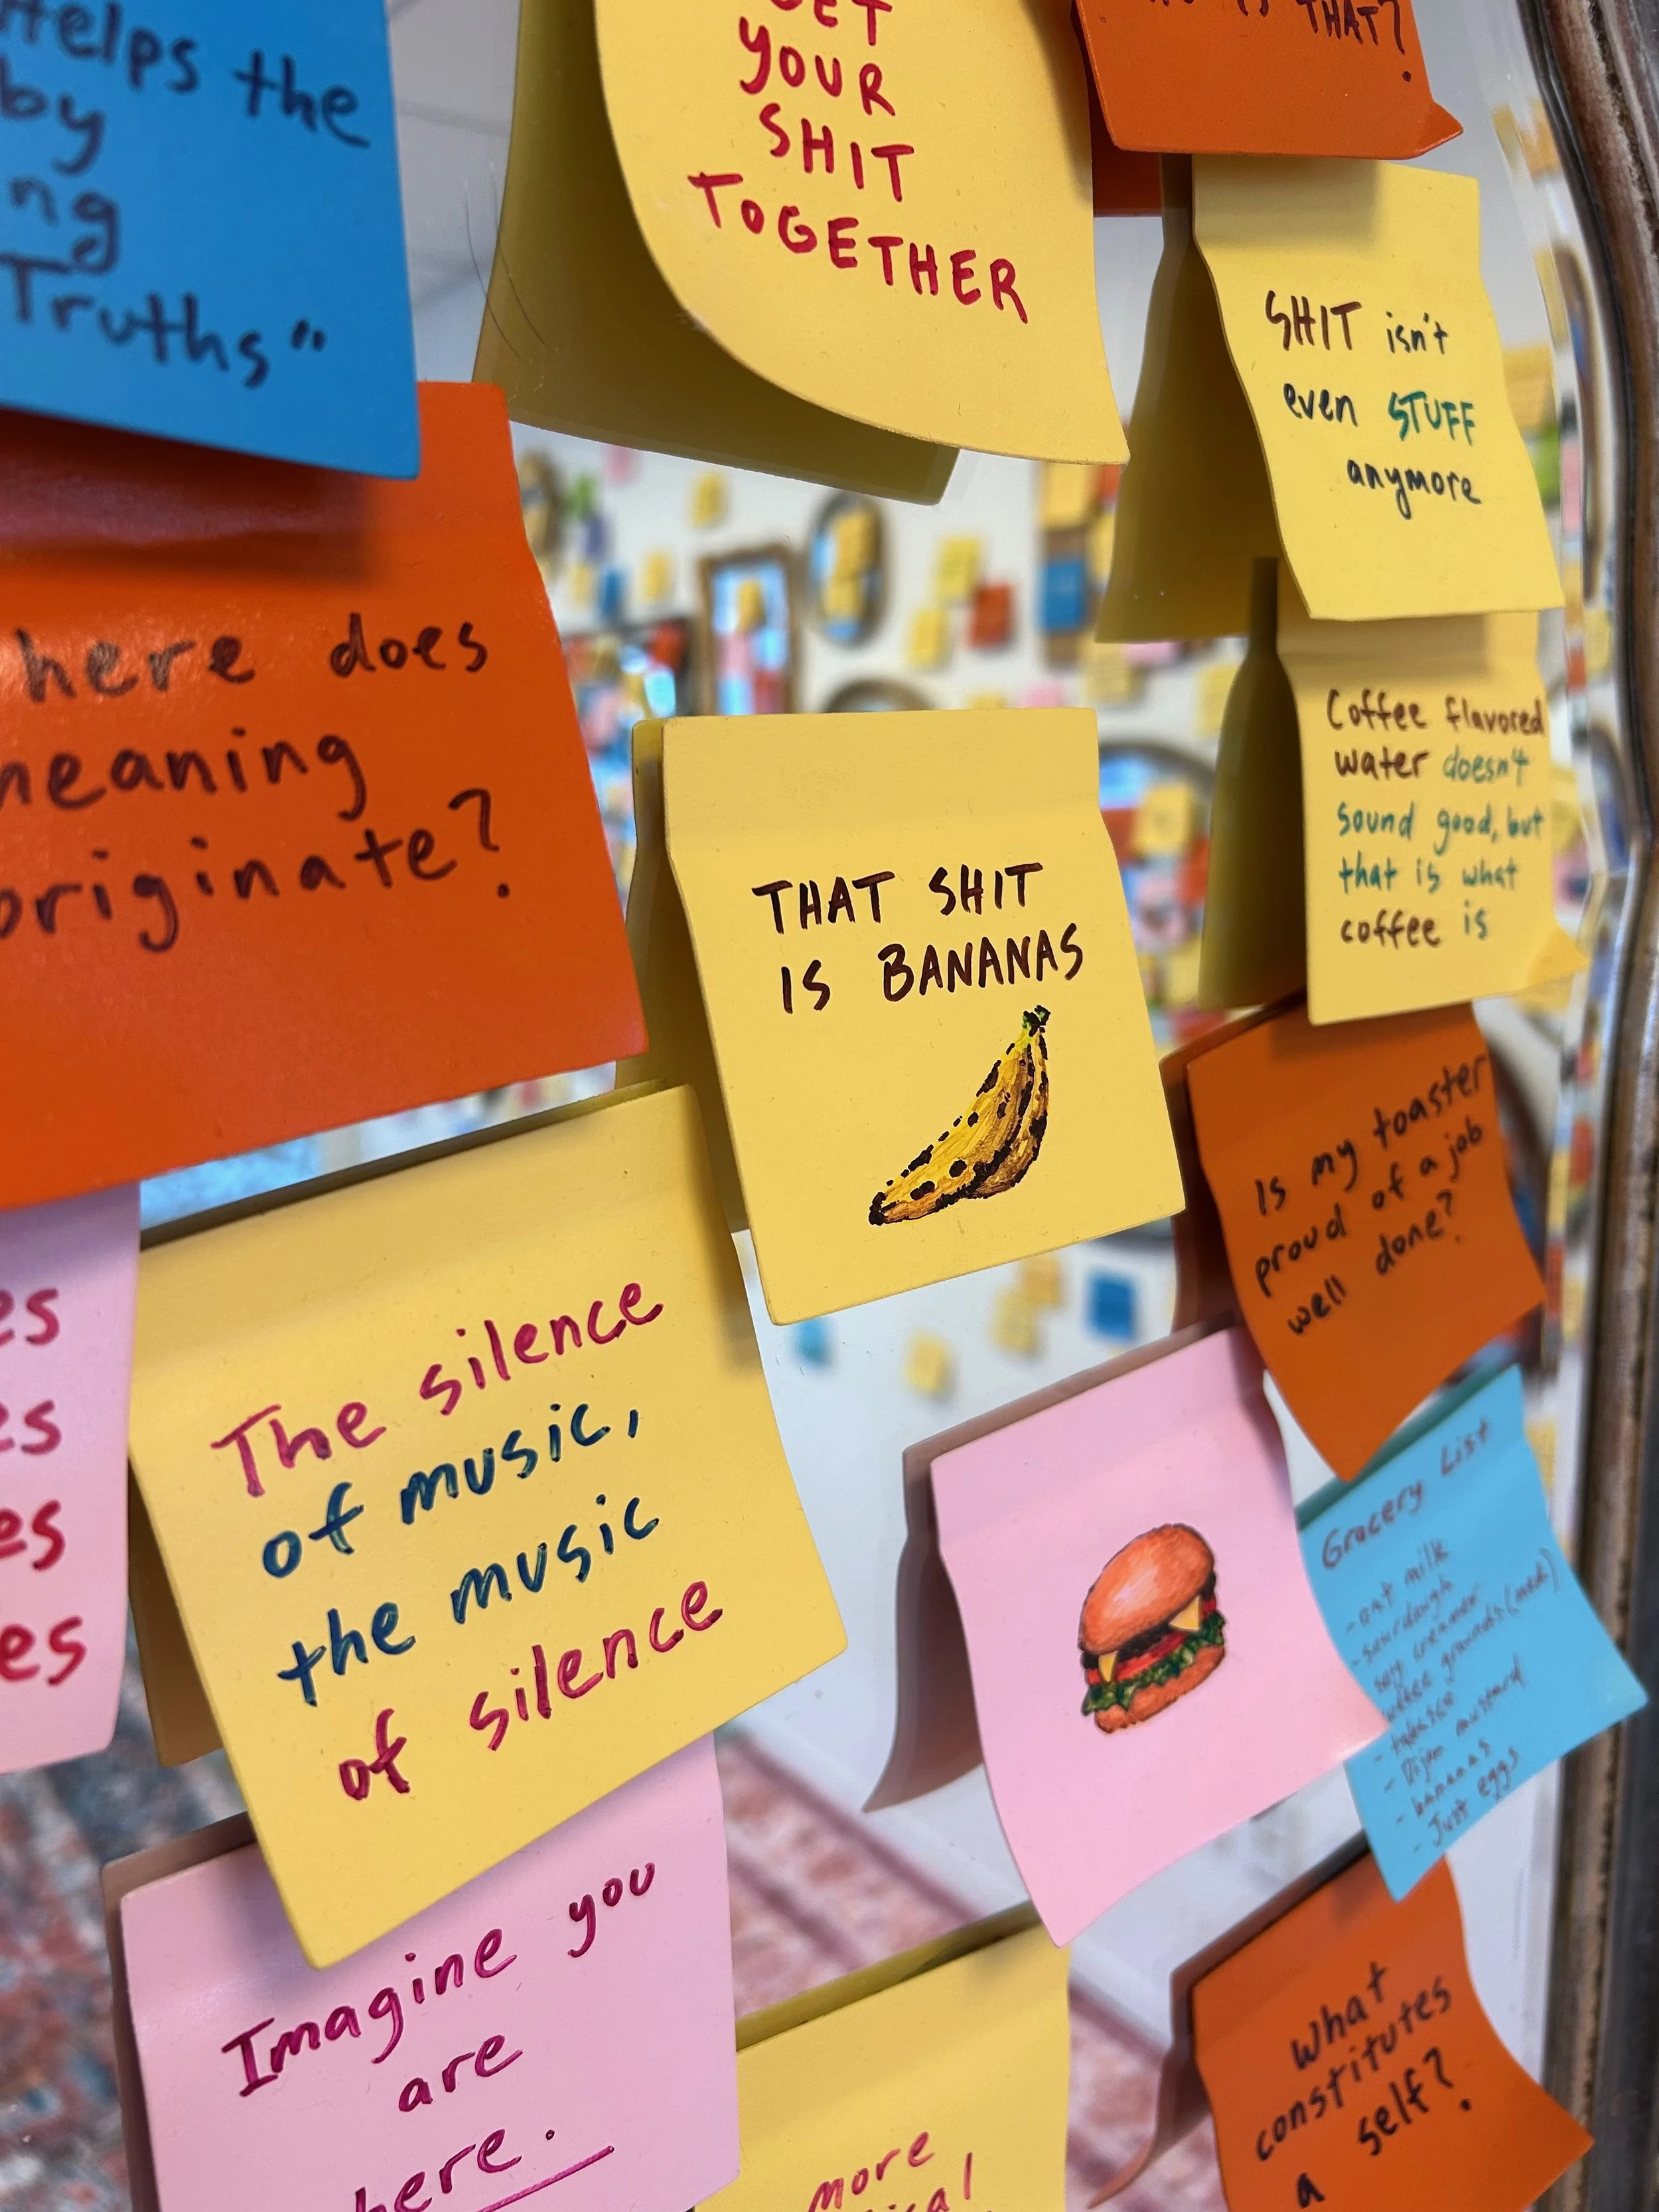 Helps the
by
Truths"
YOUR
SHIT
TOGETHER
THAT?
SHIT isn't
even STUFF
anymore
here does
meaning
originate?
Coffee flavored
water doesn't
sound good, but
that is what
coffee is
THAT SHIT
IS BANANAS
Is my toaster
proud of a job
well done?
es
es
es
es
The silence
of music,
the music
of silence
Grocery List
- oat milk
- sourdough
- soy creamer
- coffee grounds (med)
- Dijon mustard
- bananas
- Just eggs
Imagine you
are
here.
more
What
constitutes
a self?